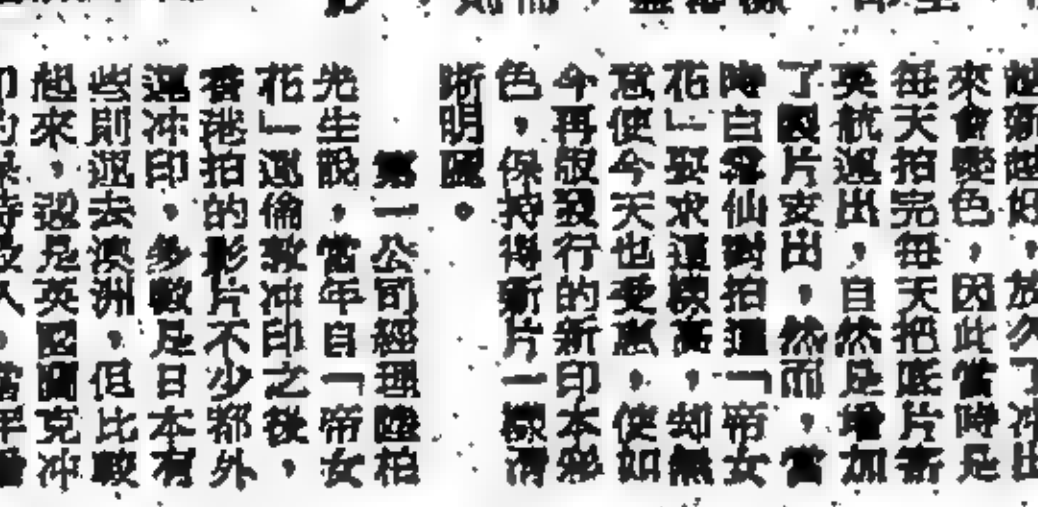 越新越好，放久了冲出
來會變色，因此當時是
每天拍完每天把底片寄
英航運出，自然是增加
了製片支出，然而，當
時白雪仙對拍這「帝女
花」要求這樣高，却無
意使今天也受惠，使如
今再版發行的新印本彩
色，保持得新片一樣清
晰明麗。
第一公司經理陸柏
光生說，當年自「帝女
花」運倫敦冲印之後，
香港拍的影片不少都外
運冲印，多數是日本有
些則運去澳洲，但比較
起來，還是英國克冲